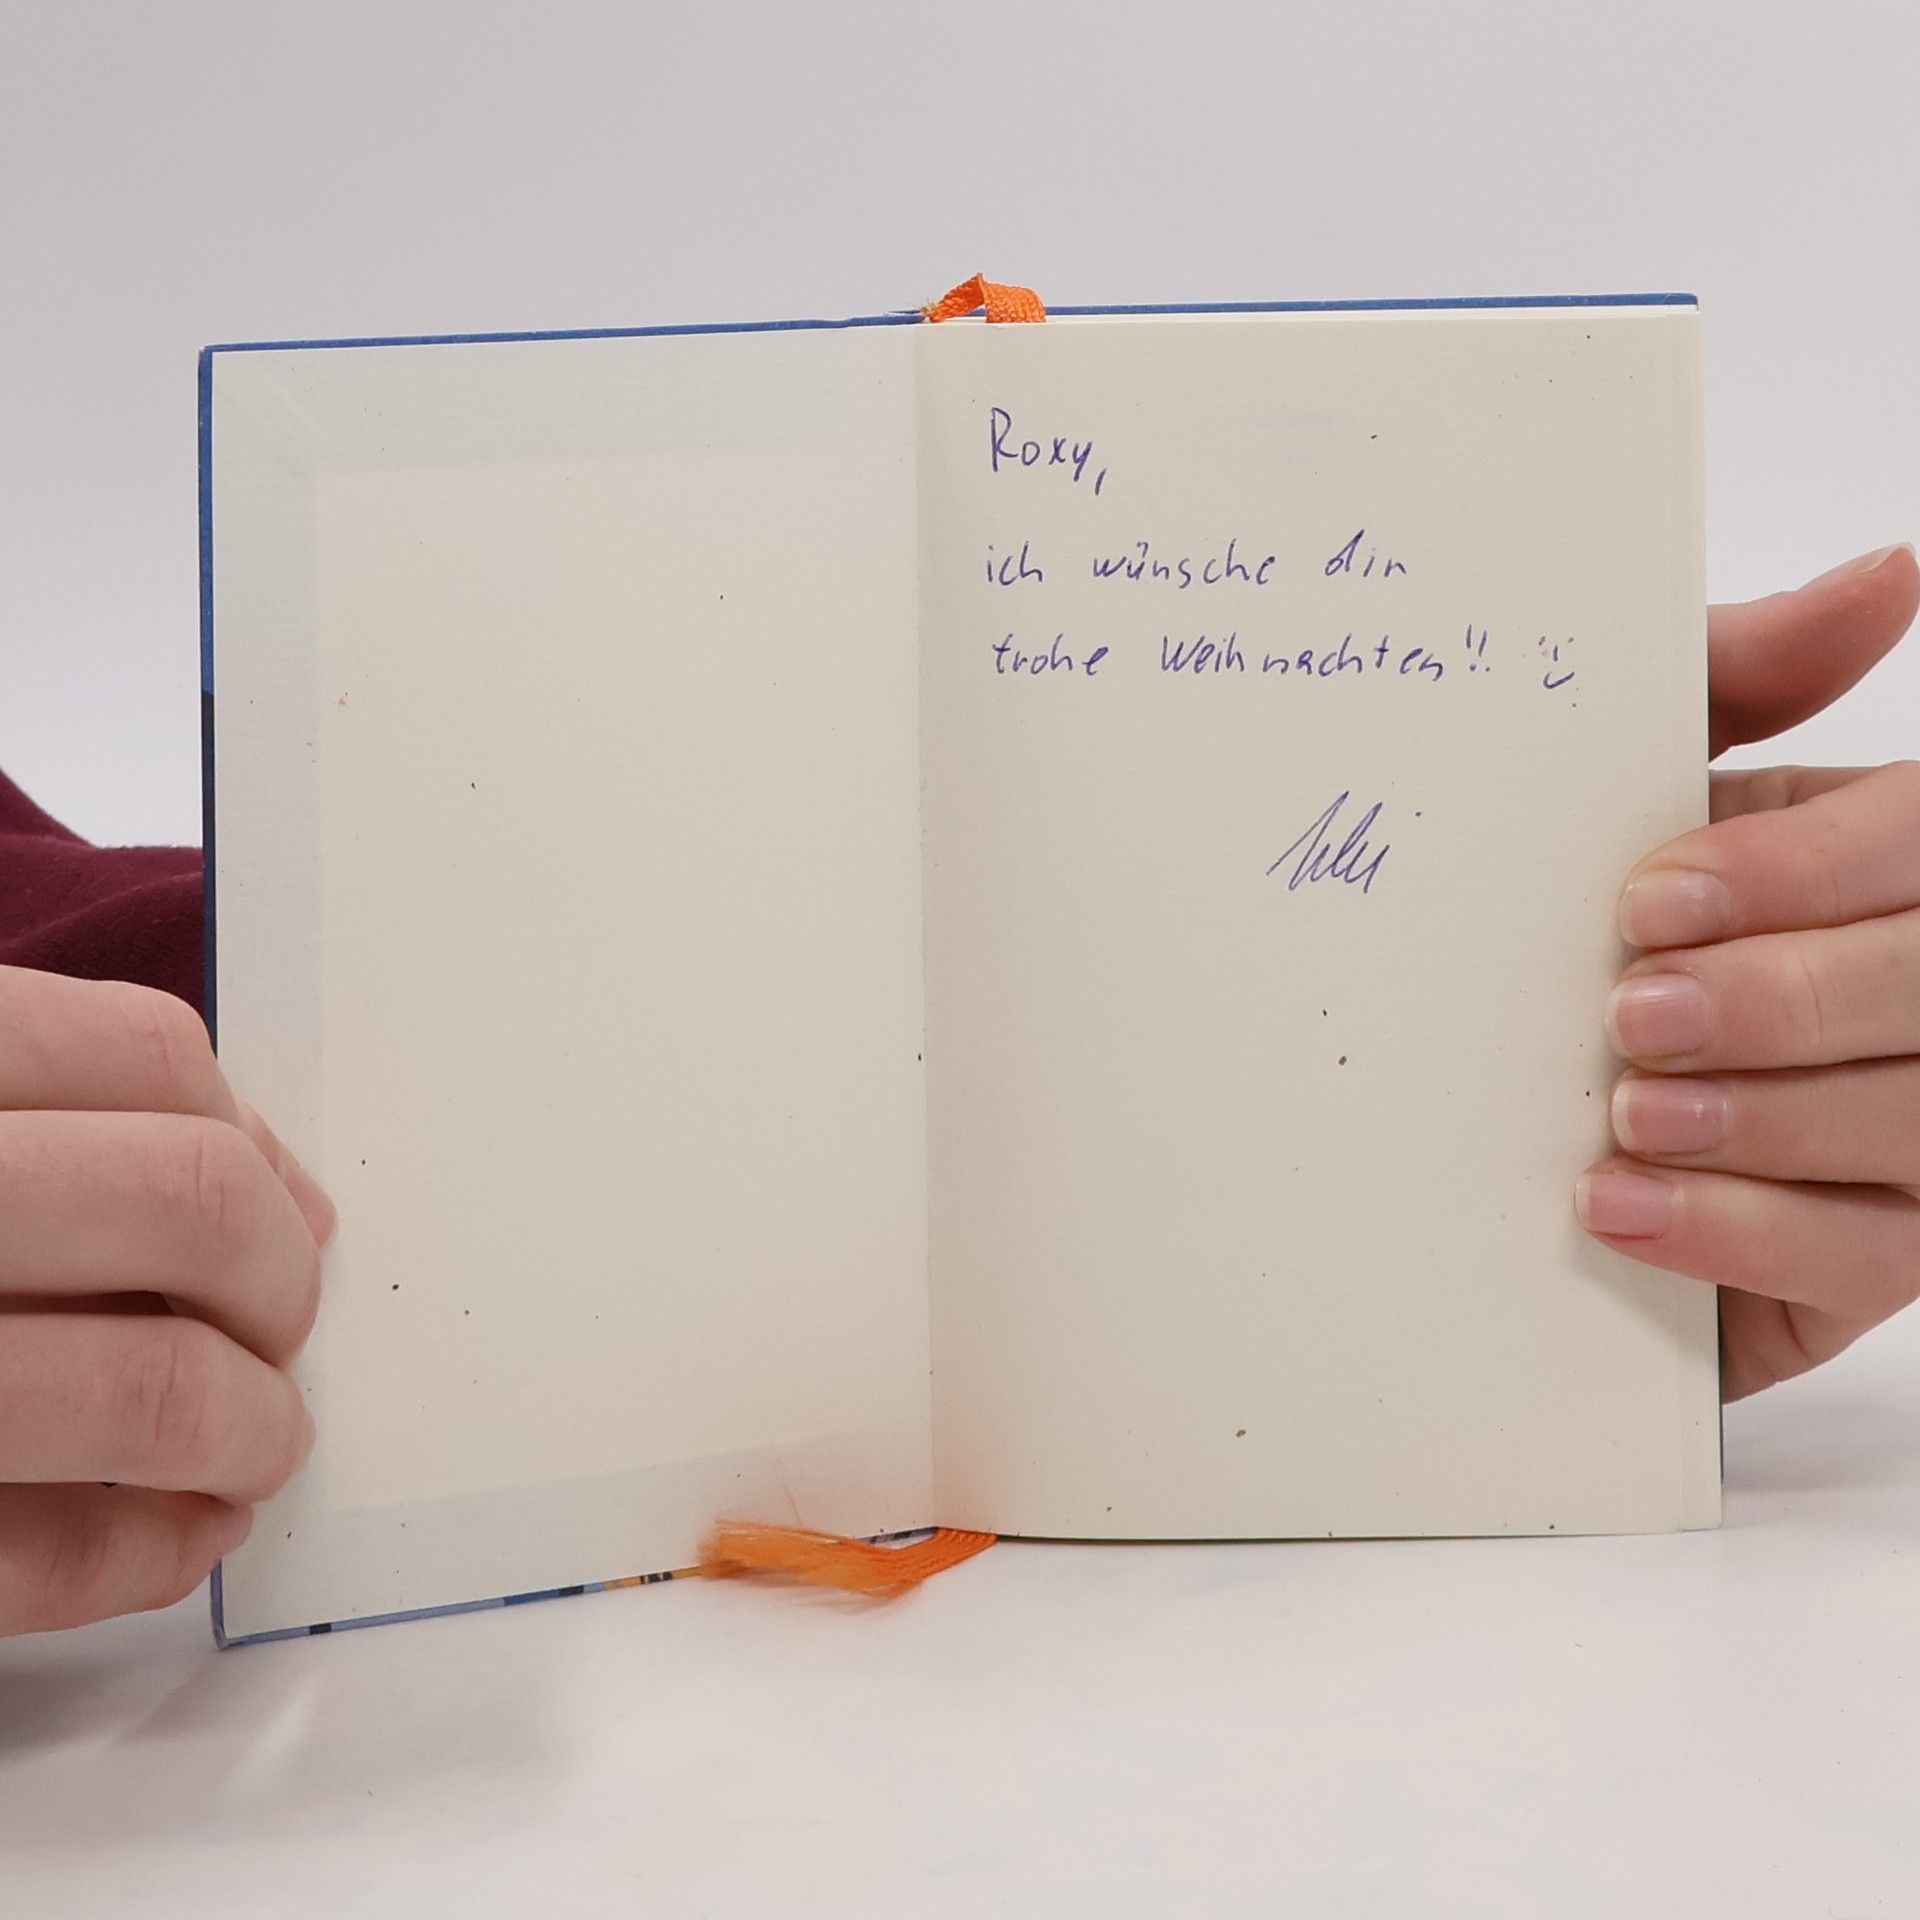 Roxy,
ich wünsche dir
frohe Weihnachten!! :)